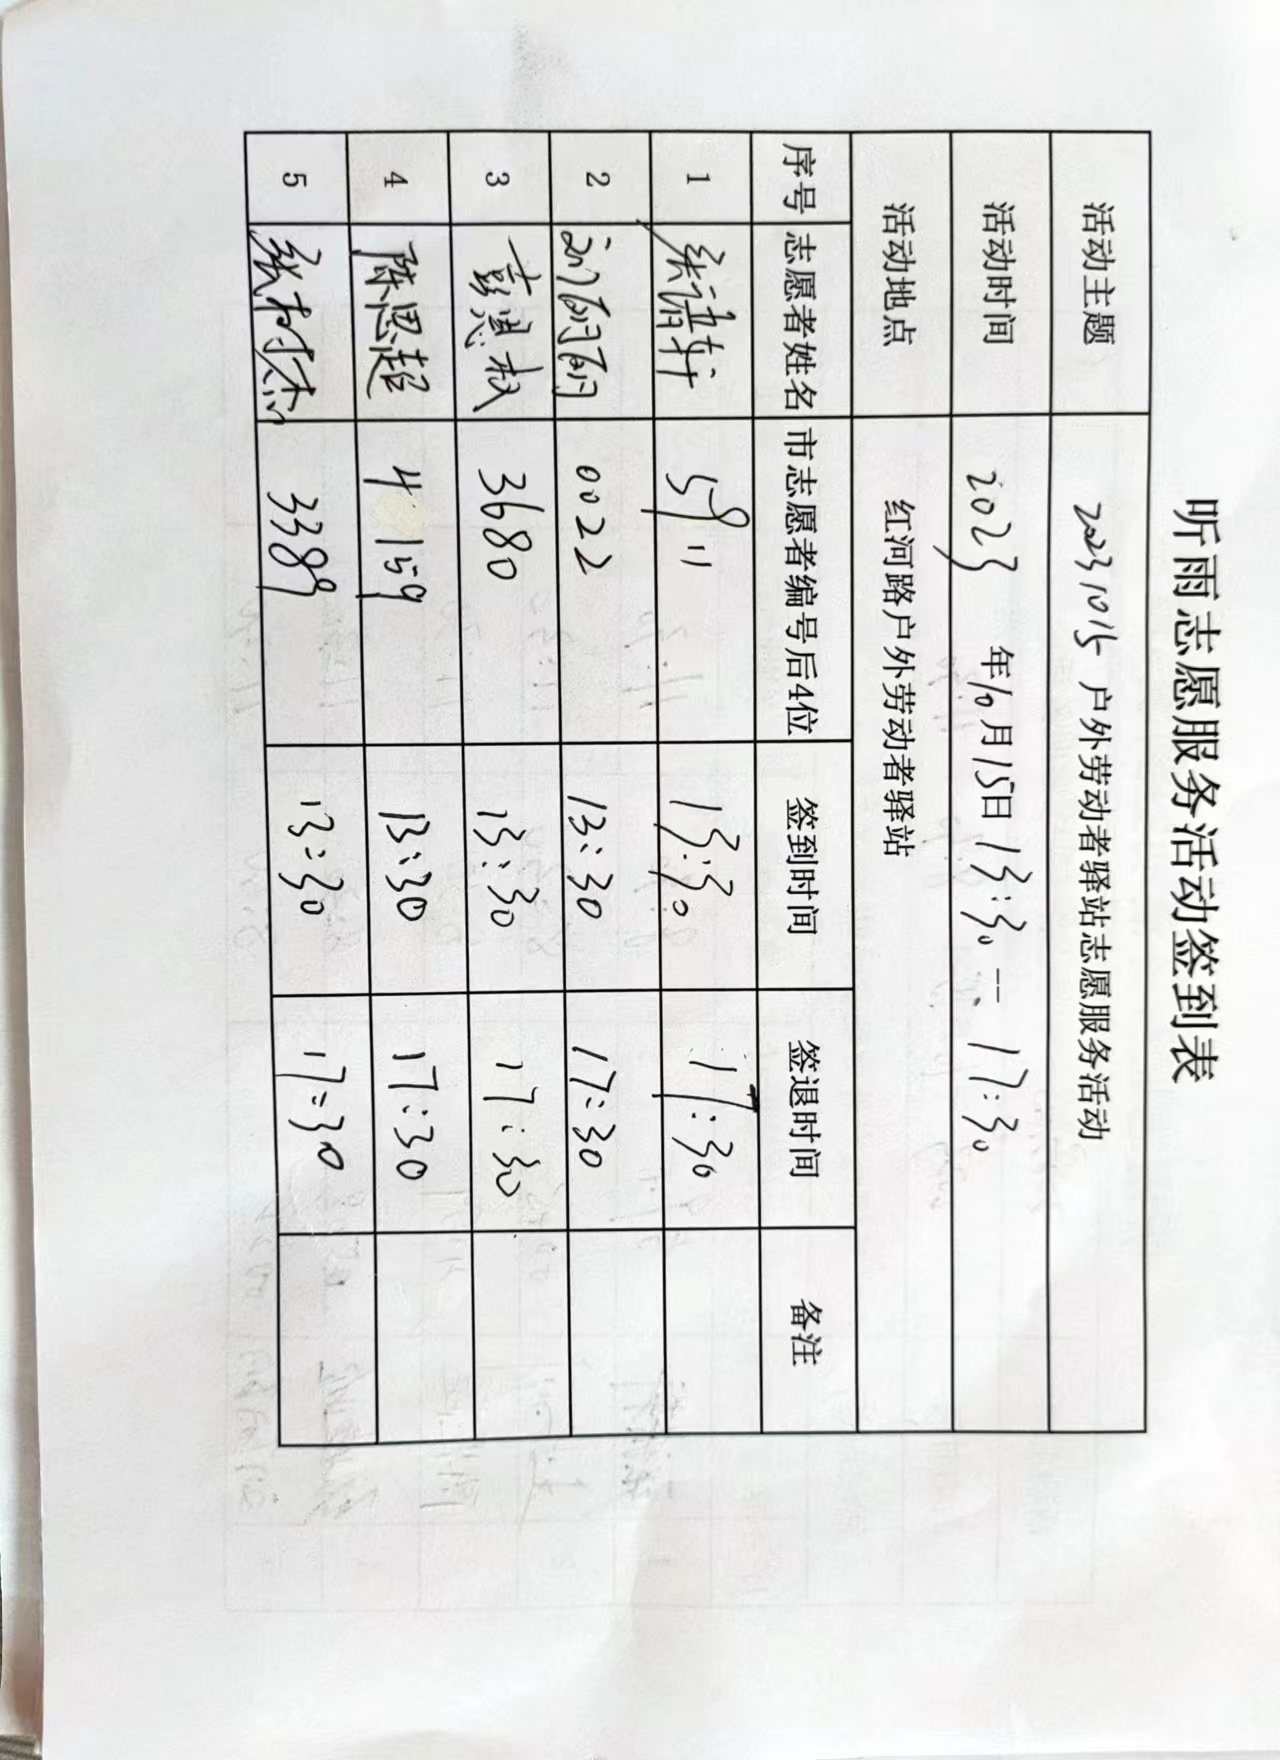 听雨志愿服务活动签到表
活动主题 20231015 户外劳动者驿站志愿服务活动
活动时间 2023 年10月15日 13:30 -- 17:30
活动地点 红河路户外劳动者驿站
序号 志愿者姓名 市志愿者编号后4位 签到时间 签退时间 备注
1 5911 13:30 17:30
2 0022 13:30 17:30
3 3680 13:30 17:30
4 陈思超 4159 13:30 17:30
5 3389 13:30 17:30